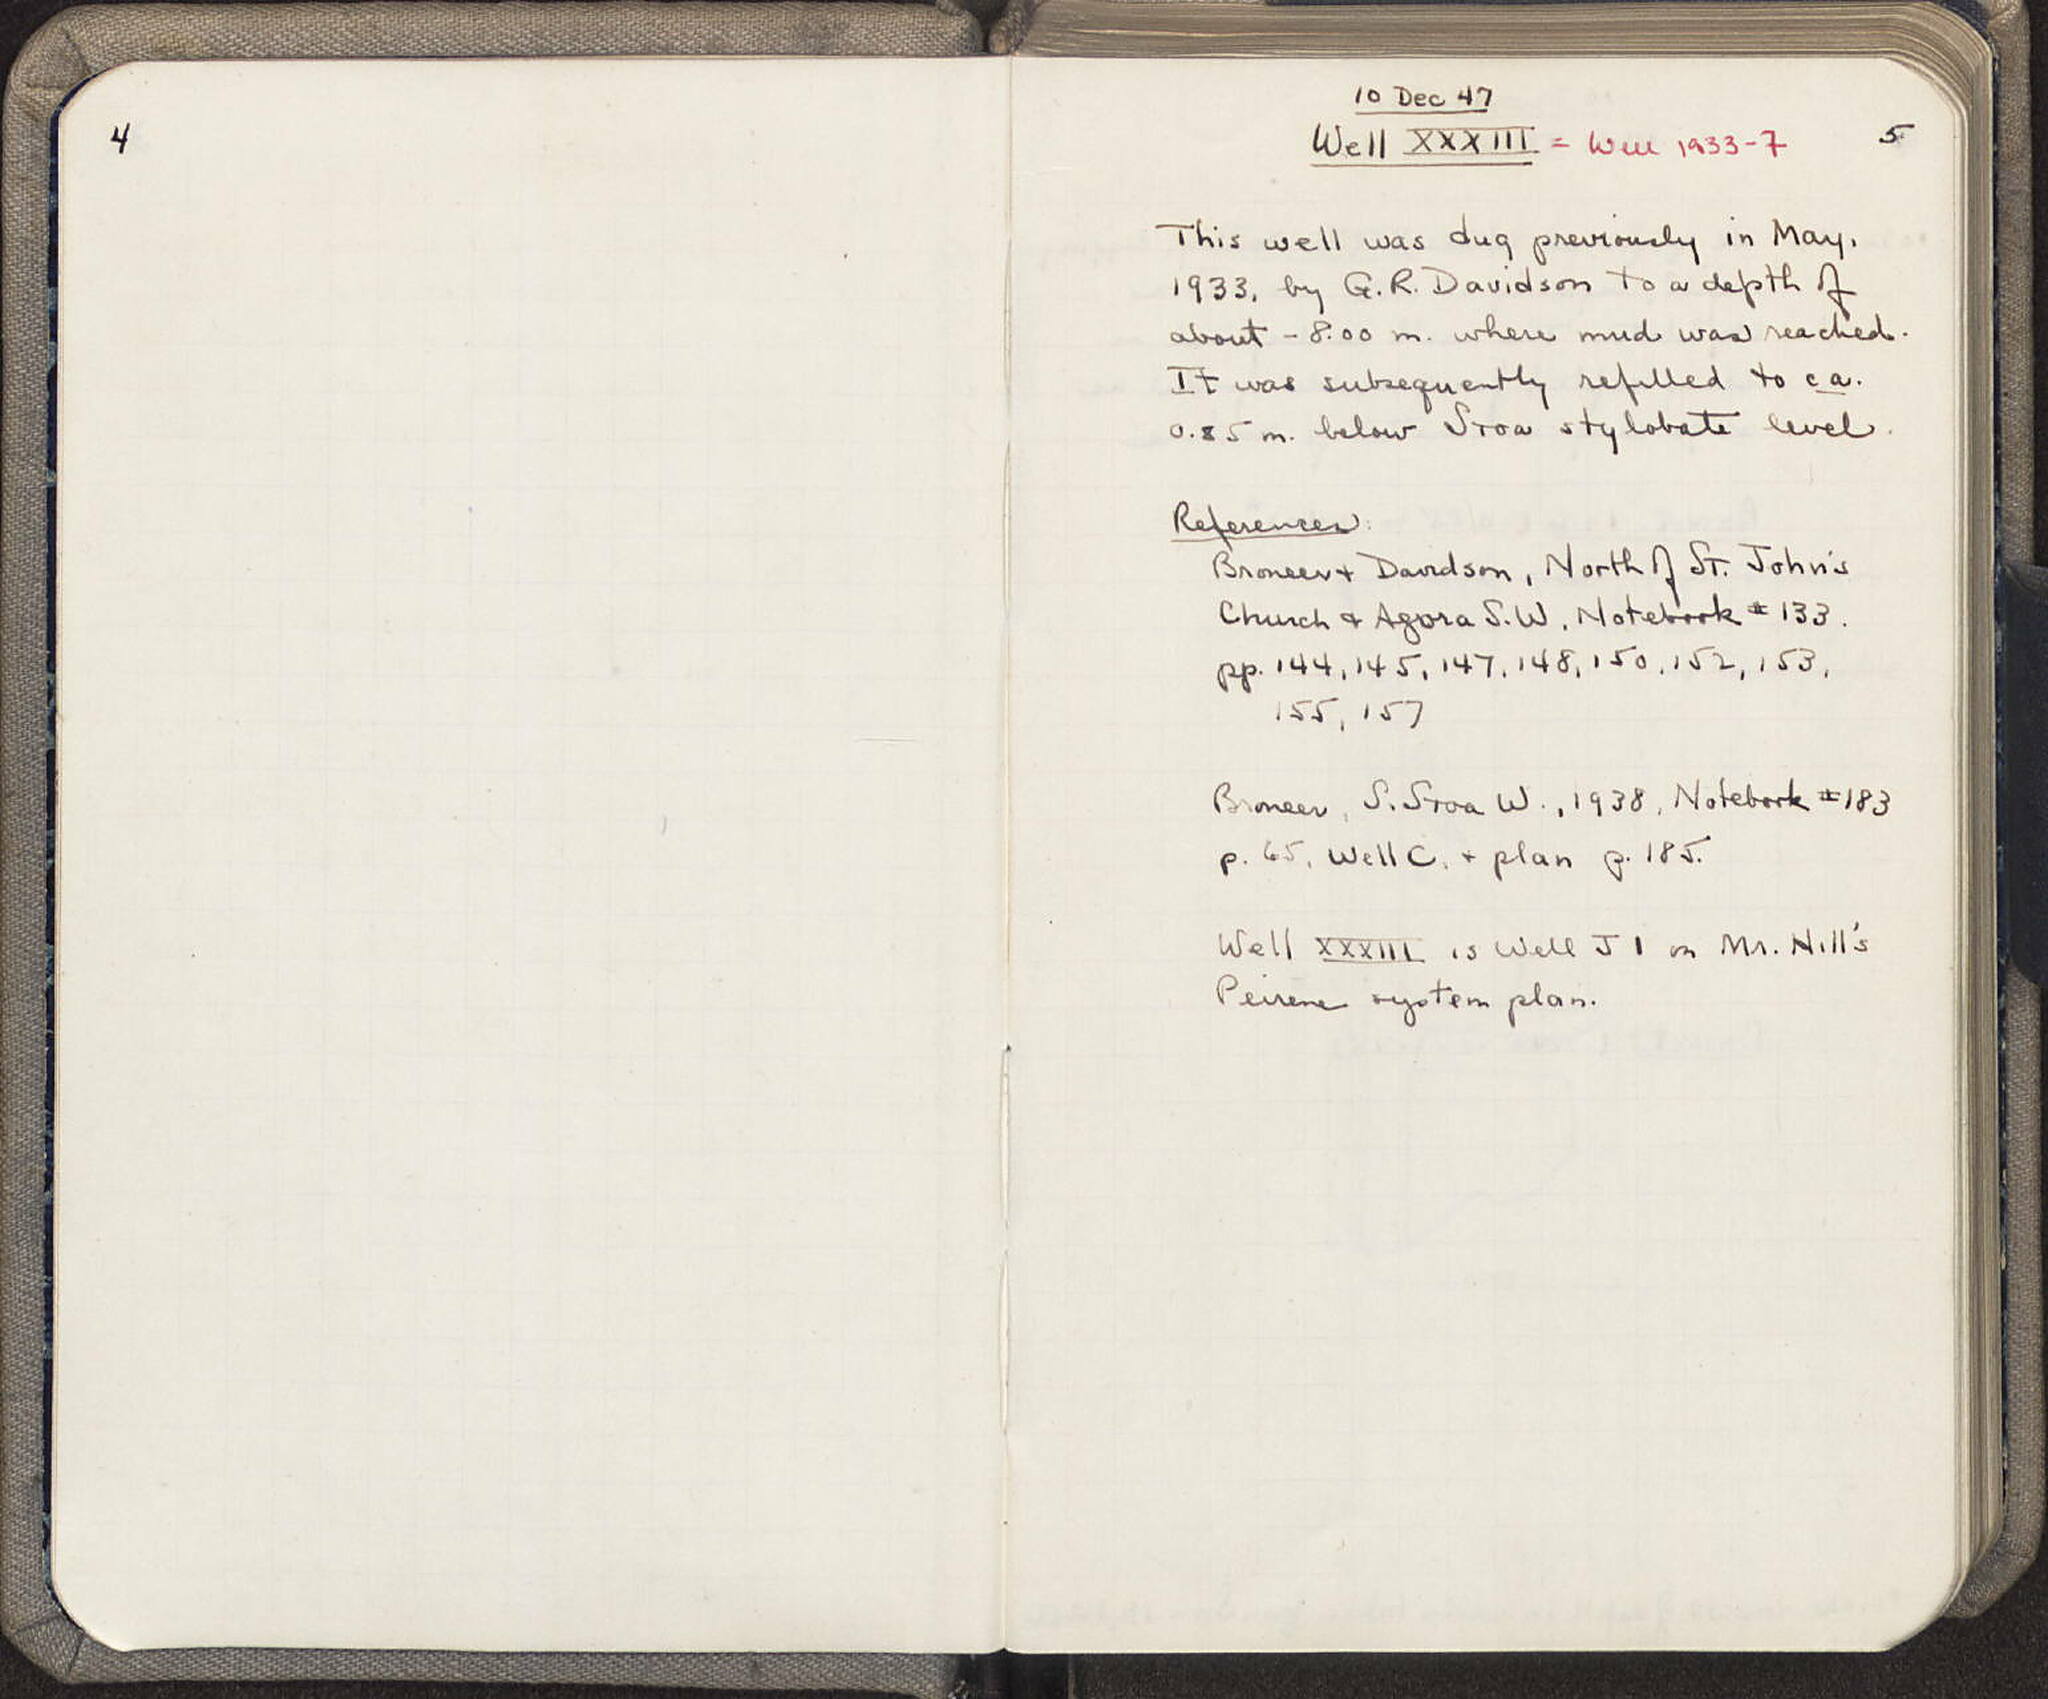 4
10 Dec 47
Well XXXIII = Well 1933-7
5
This well was dug previously in May,
1933, by G.R. Davidson to a depth of
about - 8.00 m. where mud was reached.
It was subsequently refilled to ca.
0.85 m. below Stoa stylobate level.
References:
Broneer + Davidson, North of St. John's
Church + Agora S.W, Notebook # 133.
pp. 144, 145, 147, 148, 150, 152, 153,
155, 157
Broneer, S. Stoa W., 1938, Notebook # 183
p. 65, Well C. + plan p. 185.
Well XXXIII is Well J 1 on Mr. Hill's
Peirene system plan.